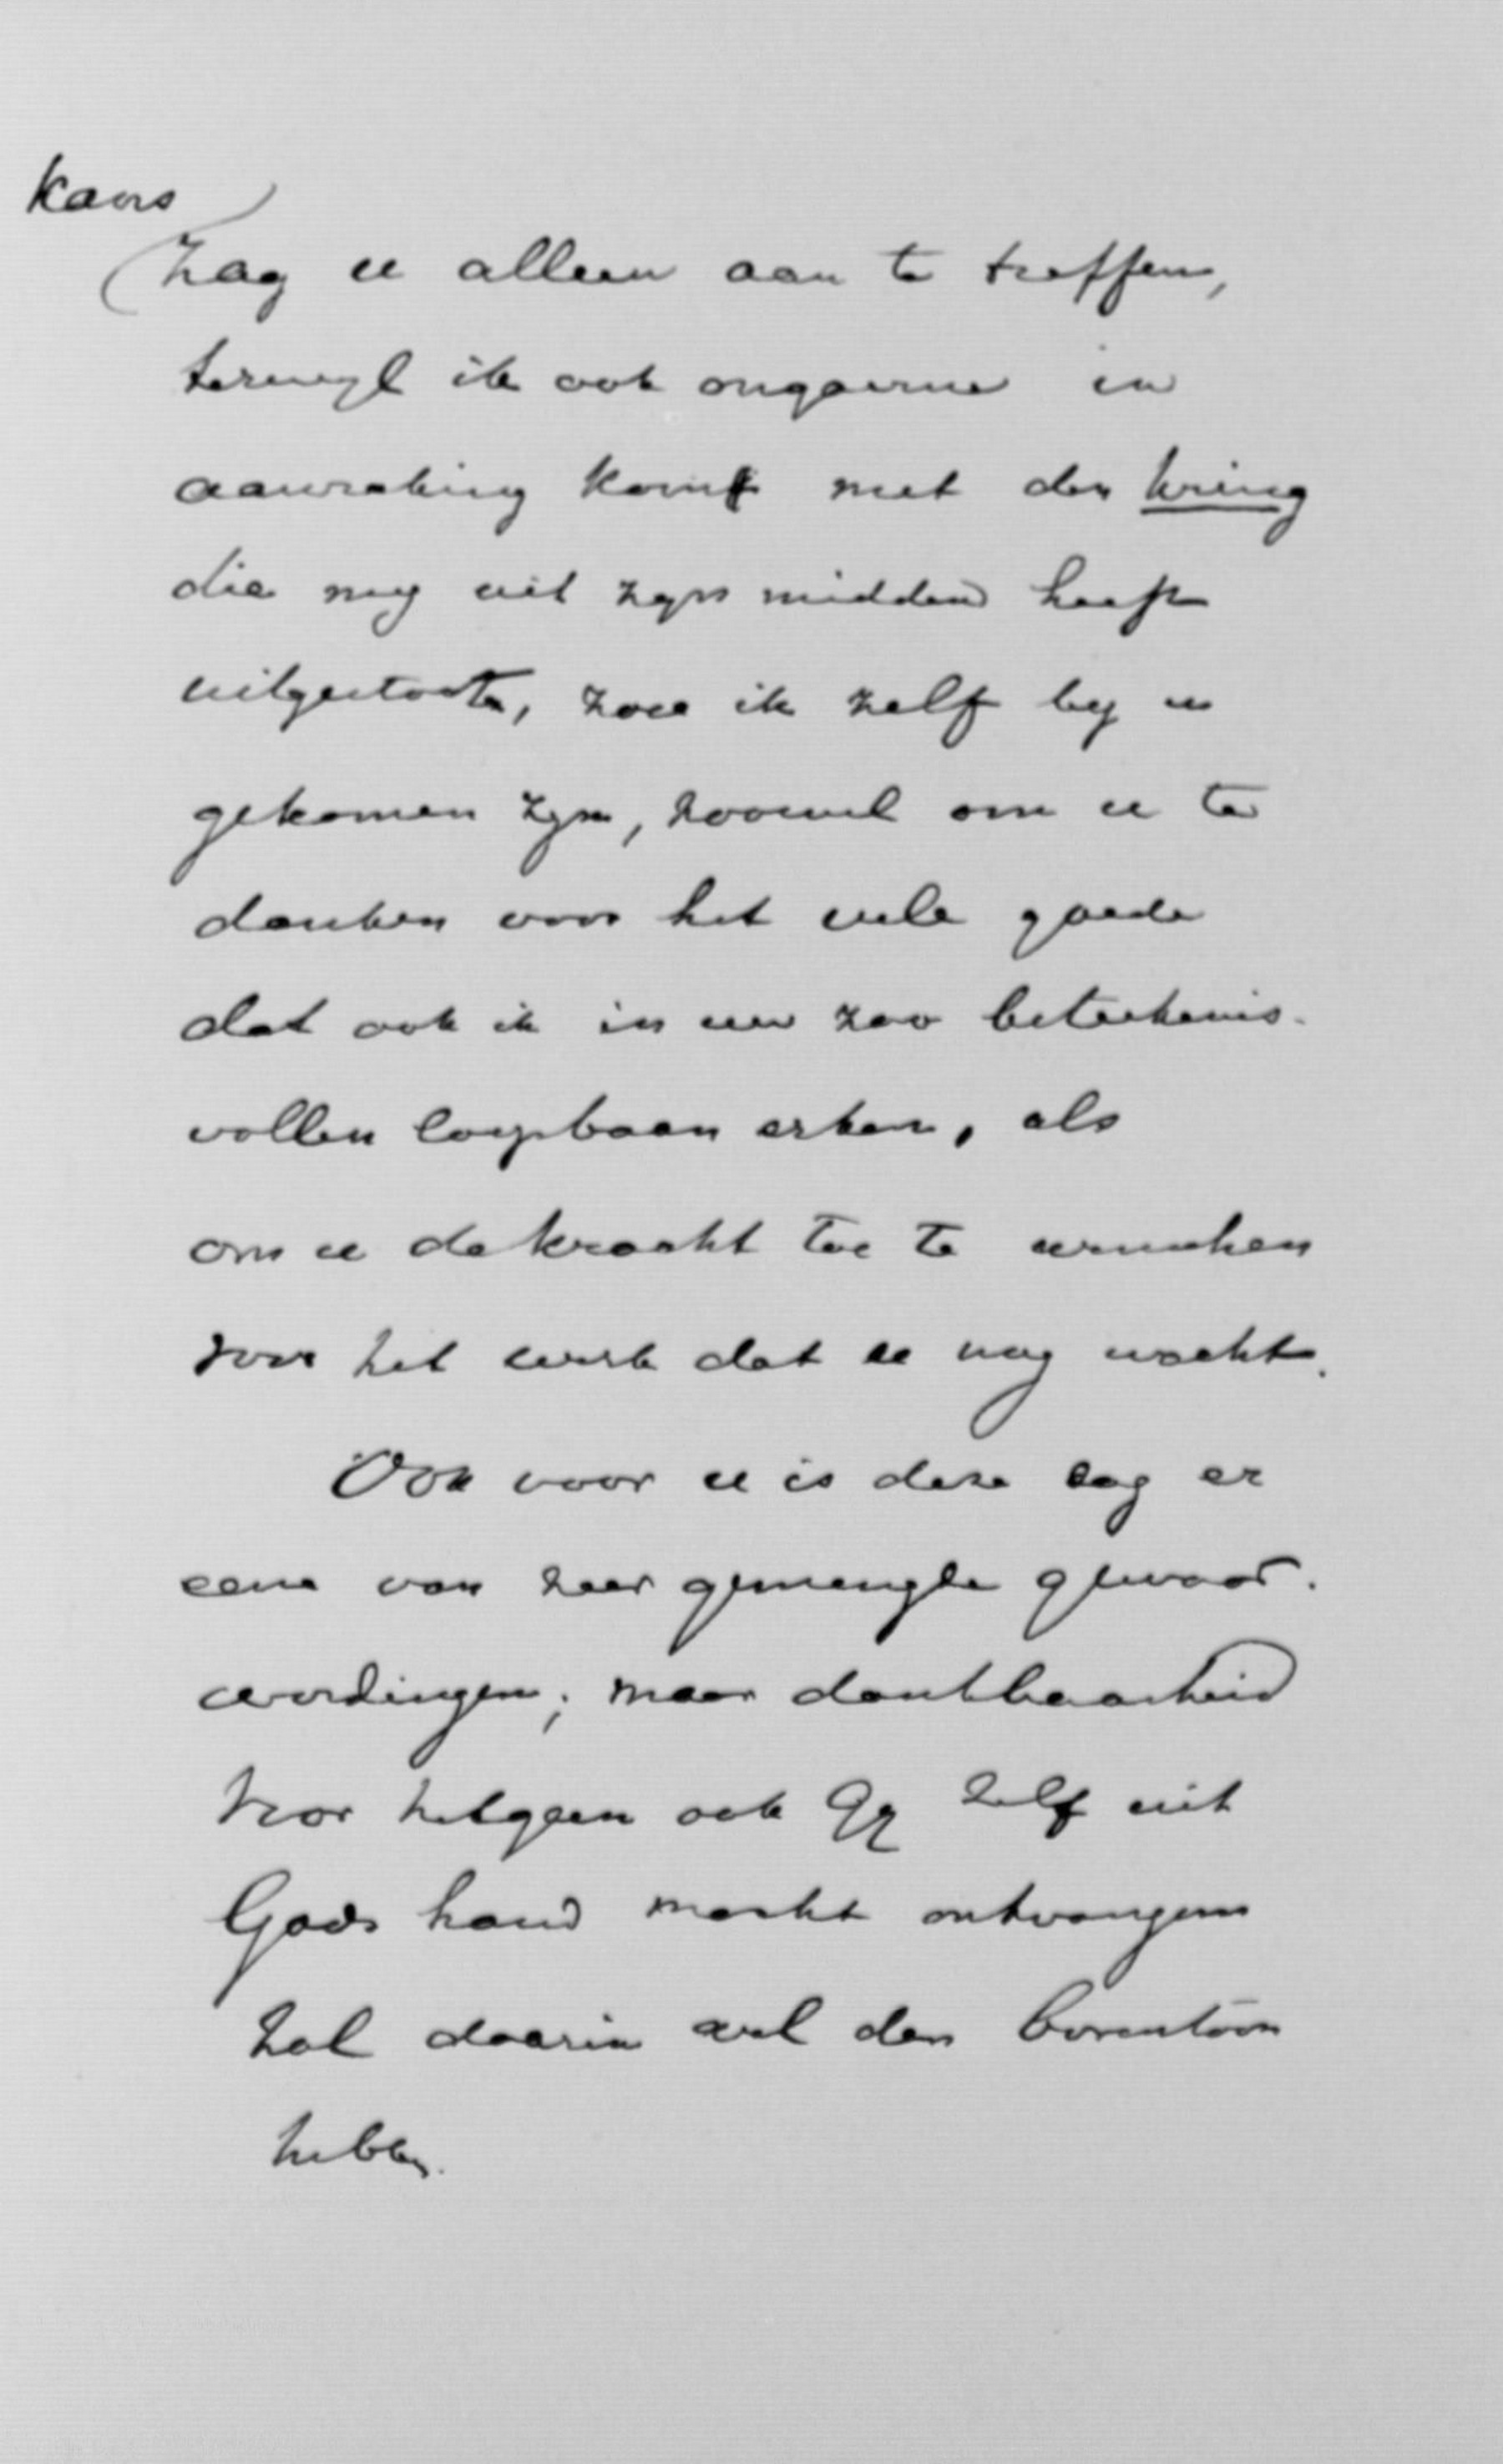 kans
zag u alleen aan te treffen,
terwyl ik ook ongaarne in
aanraking kom met den kring
die my uit zyn midden heeft
uitgestooten, zou ik zelf by u
gekomen zyn, zoowel om u te
danken voor het vele goede
dat ook ik in uw zoo beteekenis-
vollen loopbaan erken, als
om u de kracht toe te wenschen
voor het werk dat u nog wacht.
Ook voor u is deze dag er
eene van zeer gemengde gewaar-
wordingen; maar dankbaarheid
voor hetgeen ook Gy zelf uit
Gods hand mocht ontvangen
zal daarin wel den boventoon
hebben.